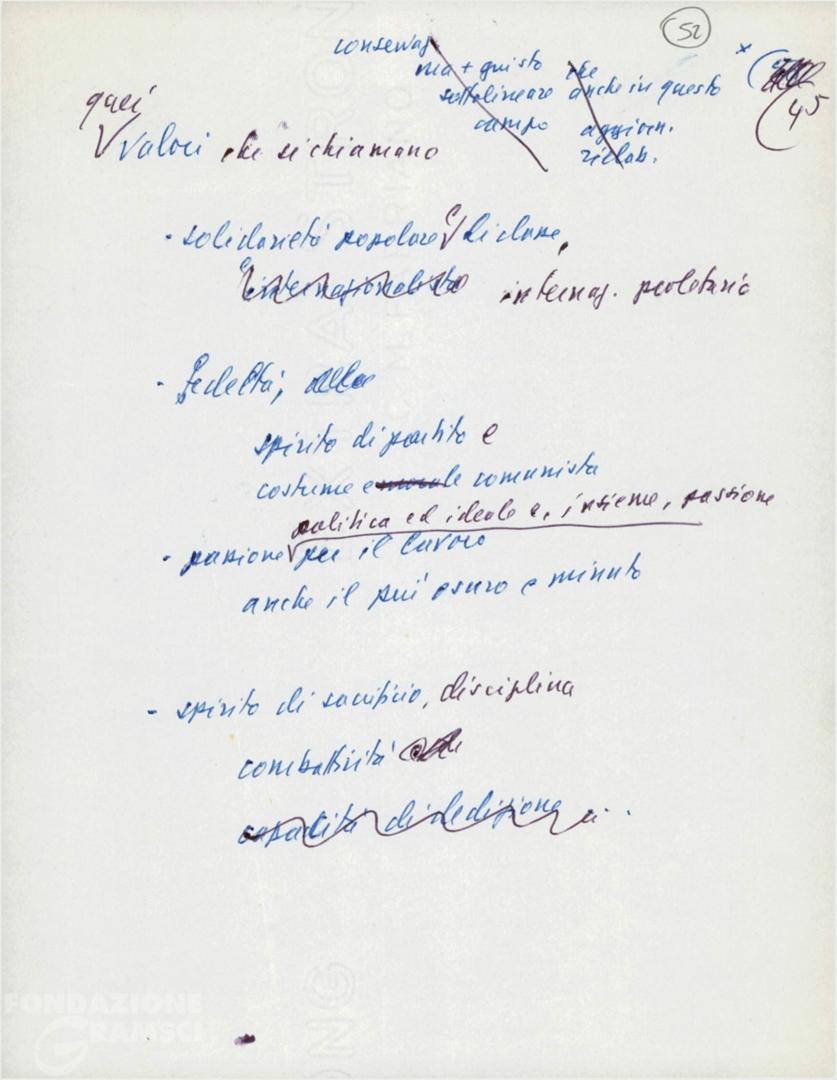 52
conservaz.
ma + giusto che
sottolineare anche in questo
campo aggiorn.
rielab.
* (
45
quei
valori che si chiamano
- solidarietà popolare e di classe,
internazionalista internaz. proletario
- Fedeltà, alla
spirito di partito e
costume morale comunista
politica ed ideale e, insieme, passione
- passione per il lavoro
anche il più oscuro e minuto
- spirito di sacrificio, disciplina
combattività
capacità di dedizione a..
FONDAZIONE
GRAMSCI